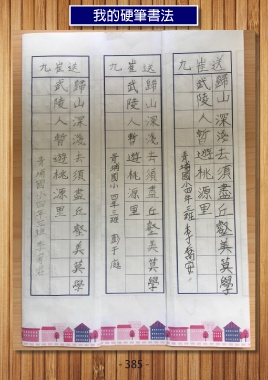 我的硬筆書法
送崔九
歸山深淺去須盡丘壑美莫學
武陵人暫遊桃源里
青埔國小四年三班
送崔九
歸山深淺去須盡丘壑美莫學
武陵人暫遊桃源里
青埔國小四年三班
送崔九
歸山深淺去須盡丘壑美莫學
武陵人暫遊桃源里
青埔國小四年三班
- 385 -